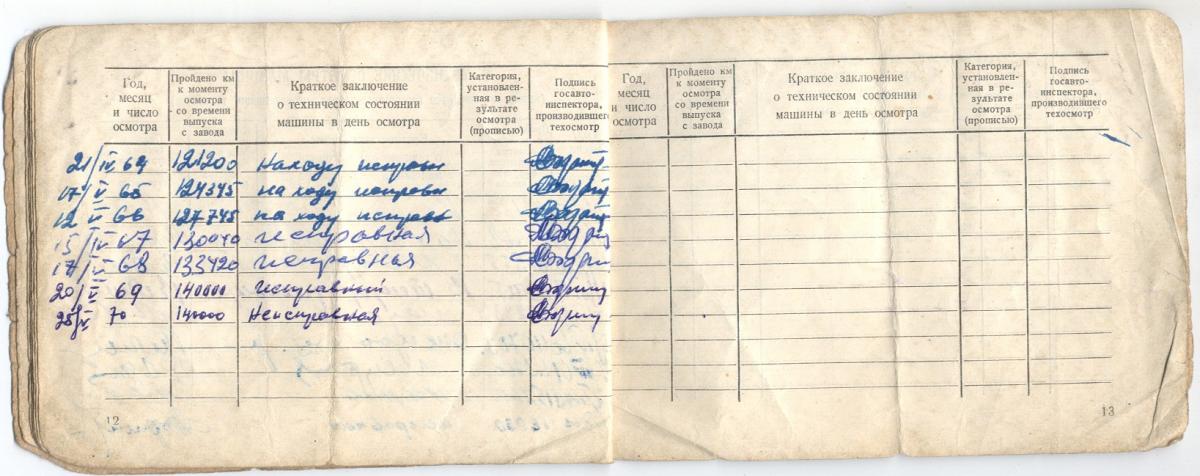 Год, месяц и число осмотра
Пройдено км к моменту осмотра со времени выпуска с завода
Краткое заключение о техническом состоянии машины в день осмотра
Категория, установленная в результате осмотра (прописью)
Подпись госавто-инспектора, производившего техосмотр
21/IV 64 121200 На ходу исправн
17/V 65 124345 на ходу исправн
12 V 66 127745 на ходу исправн
15/IV 67 130040 исправная
17/IV 68 133420 исправная
20/V 69 140000 исправный
25/IV 70 141000 Неисправная
12
Год, месяц и число осмотра
Пройдено км к моменту осмотра со времени выпуска с завода
Краткое заключение о техническом состоянии машины в день осмотра
Категория, установленная в результате осмотра (прописью)
Подпись госавто-инспектора, производившего техосмотр
13